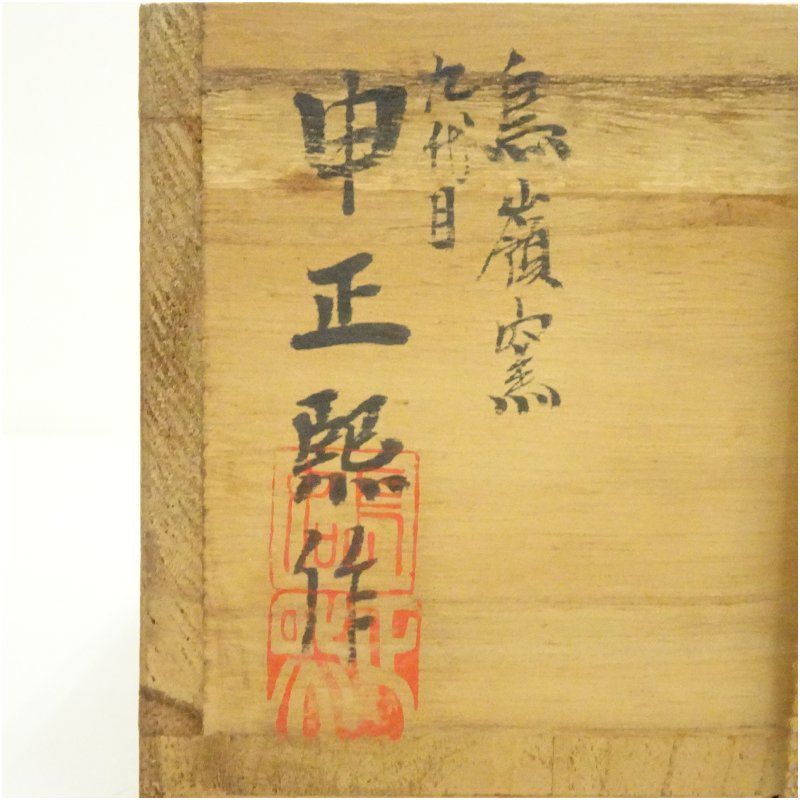 鳥嶺窯
九代目
申正熙作